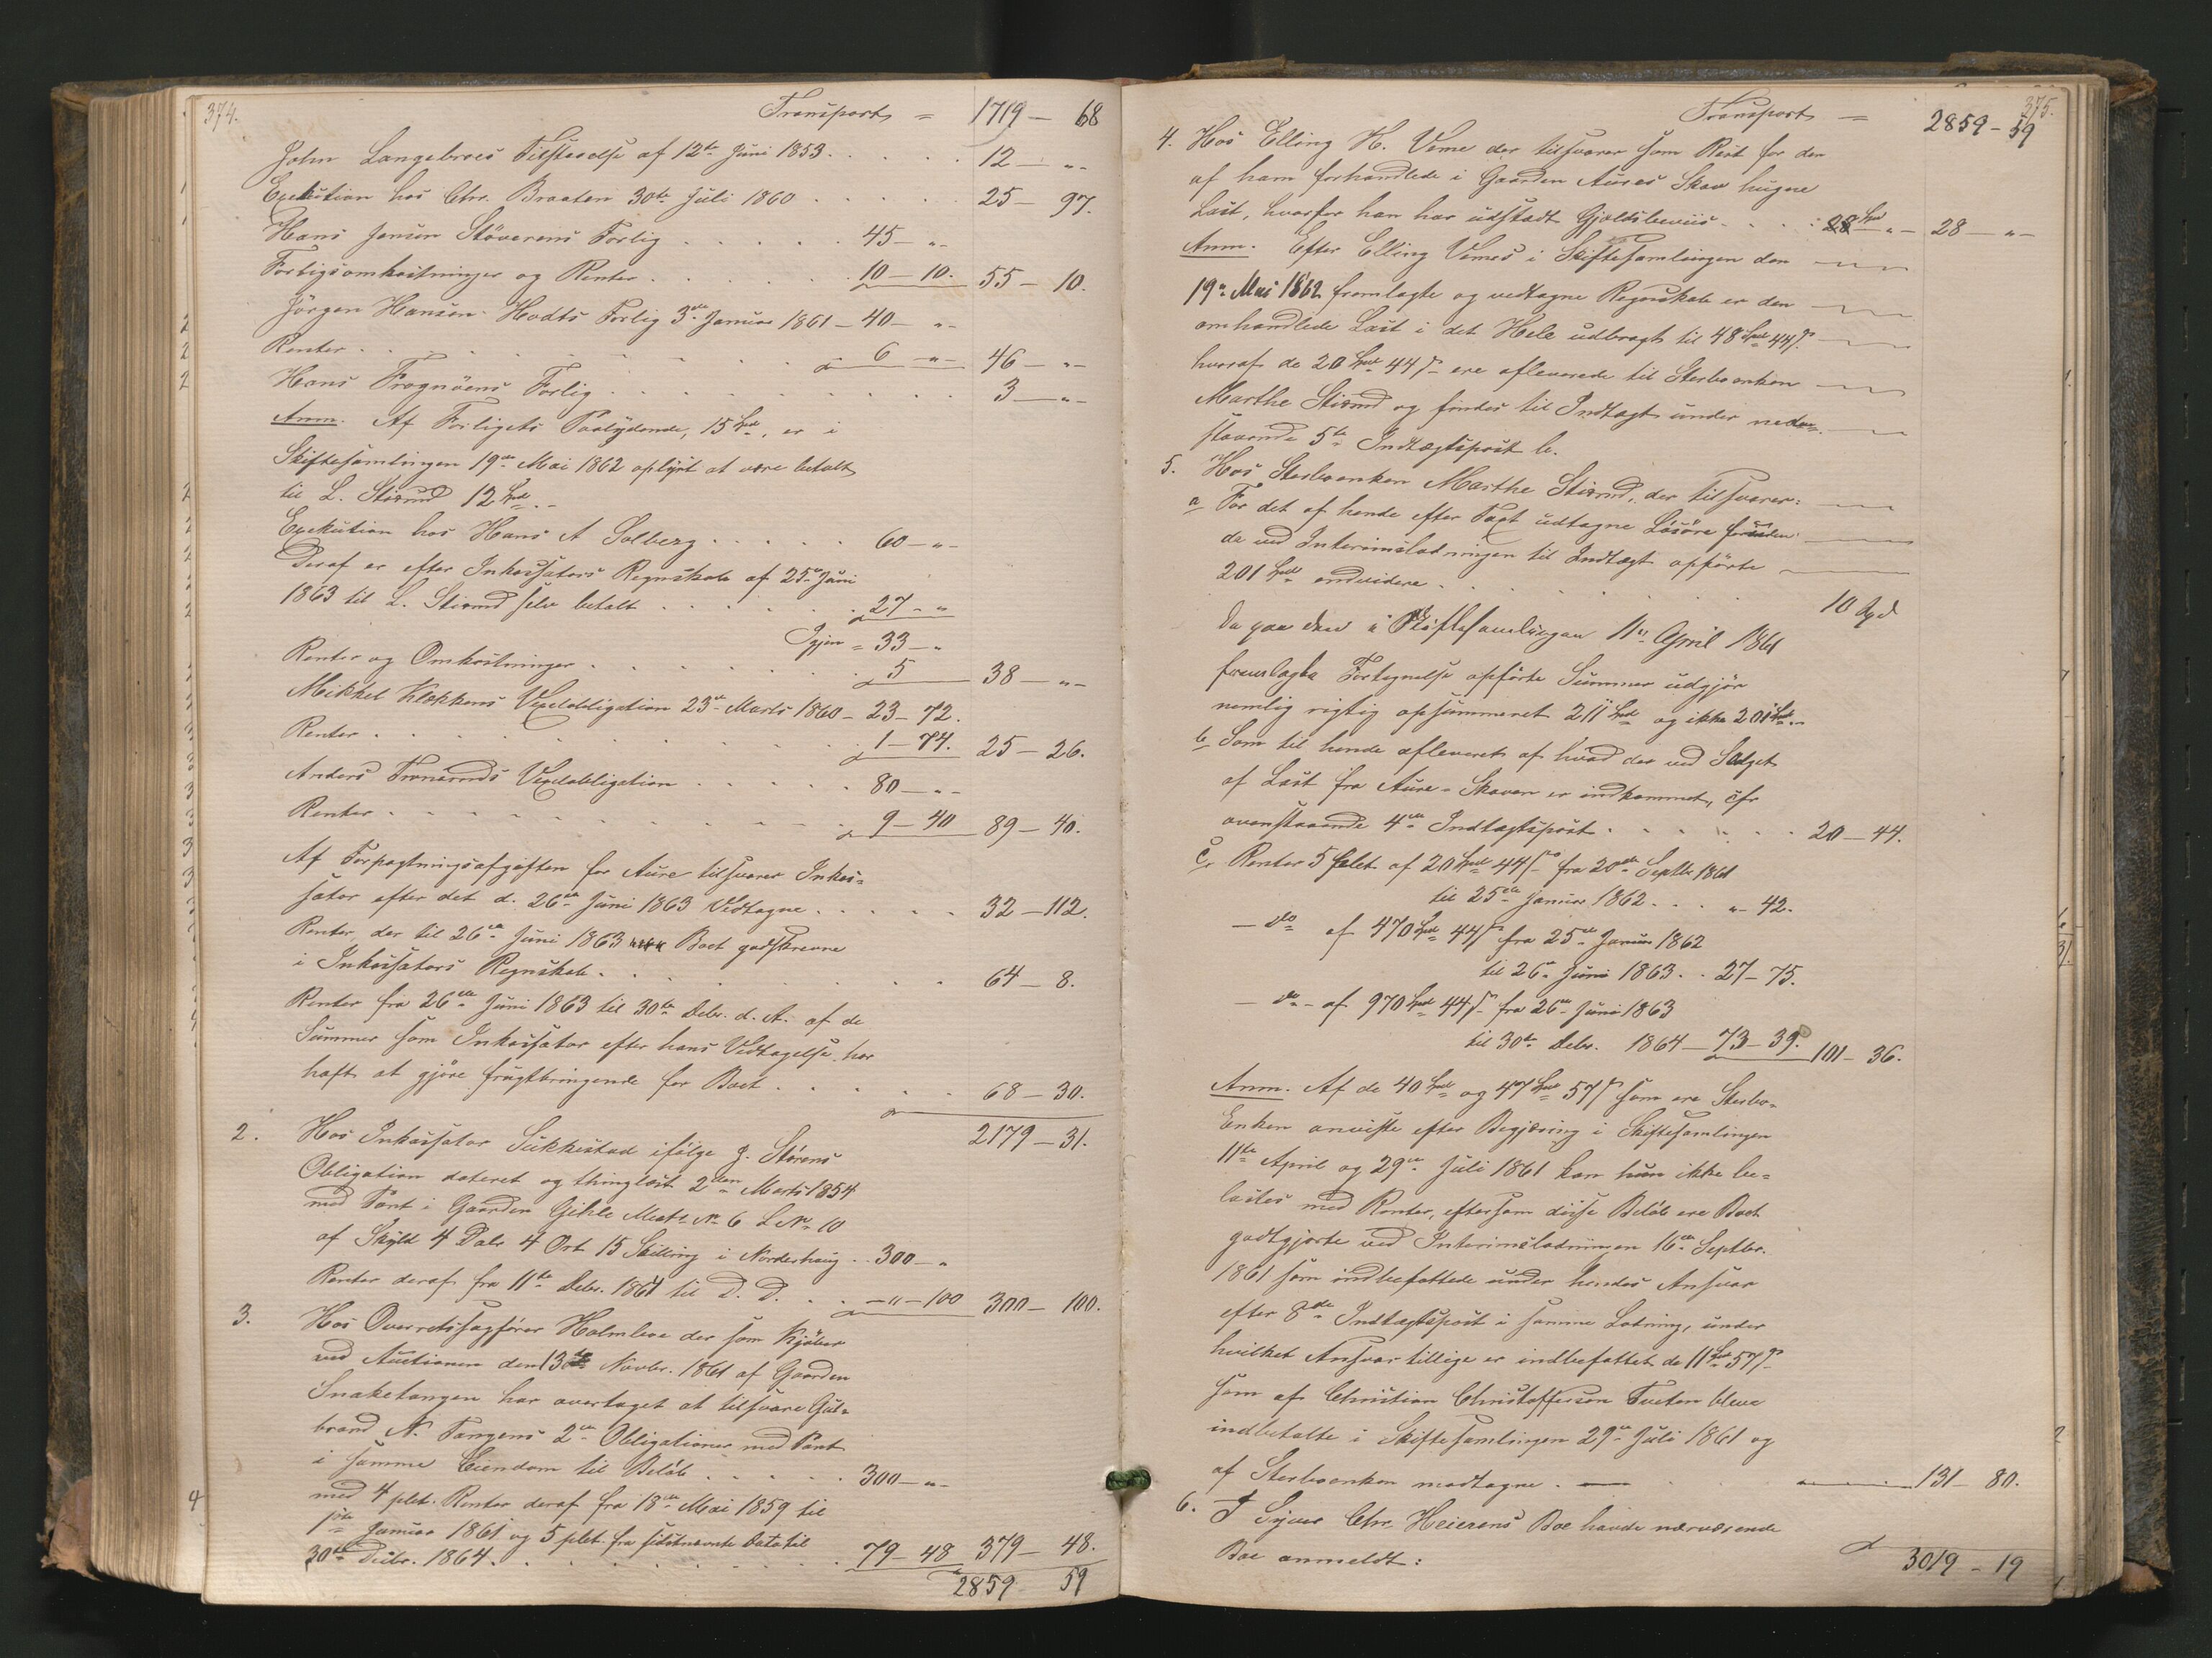 374.
Transport = 1719 — 68
John Langebroes Tilstaaelse af 12te Juni 1853 . . . . . 12 — "-
Exekution hos Chr. Braaten 30te Juli 1860 . . . . . 25 — 97.
Hans Jensen Støverens Forlig . . . . . 45 — "-
Forligsomkostninger og Renter . . . . . 10 — 10. 55 — 10.
Jörgen Hansen Hodts Forlig 3die Januar 1861 — 40 — "-
Renter . . . . . 6 — " — 46 — "-
Hans Frognöens Forlig . . . . . 3 — "-
Anm. Af Forligets Paalydende, 15 Spd, er i
Skiftesamlingen 19de Mai 1862 oplyst at være betalt
til L. Stixrud 12 Spd. -
Exekution hos Hans A Solberg . . . . . 60 — " -
Deraf er efter Inkassators Regnskab af 25de Juni
1863 til L. Stixrud selv betalt . . . . . 27 - "
Igjen = 33 — "
Renter og Omkostninger . . . . . 5 38 — "-
Mikkel Klækkens Vexelobligation 23de Marts 1860 - 23 - 72.
Renter . . . . . 1 — 74. 25 — 26.
Anders Tronsruds Vexelobligation . . . . . 80 — " -
Renter . . . . . 9 — 40 89 — 40.
Af Forpagtningsafgiften for Aure tilsvarer Inkas=
sator efter det d. 26de Juni 1863 Vedtagne . . . . . 32 — 112.
Renter, der til 26de Juni 1863 Boet godskrevne
i Inkassators Regnskab . . . . . 64 — 8.
Renter fra 26de Juni 1863 til 30te Debr. d. A. af de
Summer som Inkassator efter hans Vedtagelse har
haft at gjöre frugtbringende for Boet . . . . . 68 — 30.
2179 — 31.
2. Hos Inkassator Sukkestad ifölge J. Störens
Obligation dateret og thinglæst 2den Marts 1854
med Pant i Gaarden Gihle Matr. No 6 L No 10
af Skyld 4 Dalr 4 Ort 15 Skilling i Norderhoug . . 300 — "
Renter deraf fra 11te Debr. 1864 til D. D. . . — " — 100 300 — 100.
3. Hos Overretssagförer Holmboe der som Kjöber
ved Auctionen den 13de Novbr. 1861 af Gaarden
Snaketangen har overtaget at tilsvare Gul=
brand N. Tangens 2de Obligationer med Pant
i samme Eiendom til Beløb . . . . . 300 — "-
med 4 pCt. Renter deraf fra 18de Mai 1859 til
1ste Januar 1861 og 5 pCt. fra sidstnævnte Dato til
30te Decbr. 1864 . . . . . 79 — 48 379 — 48.
2859 59
375.
Transport = 2859 - 59
4. Hos Elling K. Veme der tilsvarer som Rest for den
af ham forhandlede i Gaarden Aures Skov hugne
Last, hvorfor han har udstædt Gjældsbeviis . . . . 28 Spd " — 28 — " —
Anm. Efter Elling Vemes i Skiftesamlingen den
19de Mai 1862 fremlagte og vedtagne Regnskab er den
omhandlede Last i det Hele udbragt til 48 Spd 44 s
hvoraf de 20 Spd 44 s ere afleverede til Sterboenken
Marthe Stixrud og findes til Indtægt under neden=
staaende 5te Indtægtspost b.
5. Hos Sterboenken Marthe Stixrud, der tilsvarer:
a For det af hende efter Taxt udtagne Løsøre foruden
de ved Interimsladningen til Indtægt opförte
201 Spd endvidere . . . . . 10 Spd
da paa den i Skiftesamlingen 11te April 1861
fremlagte Fortegnelse opförte Summer udgjör
nemlig rigtig opsummeret 211 Spd og ikke 201 Spd.
b Som til hende afleveret af hvad der ved Salget
af Last fra Aure-Skoven er indkommet, cfr
ovenstaaende 4de Indtægtspost . . . . . 20 — 44.
c, Renter 5 pCt. af 20 Spd 44 s fra 20de Septbr 1861
til 25de Januar 1862 . . . " - 42.
— do af 470 Spd 44 s fra 25de Januar 1862
til 26de Juni 1863 . . 27 — 75.
— do — af 970 Spd 44 s fra 26de Juni 1863
til 30te Debr. 1864 — 73 — 39. 101 — 36.
Anm. Af de 40 Spd og 47 Spd 57 s som ere Sterbo=
Enken anviste efter Begjæring i Skiftesamlingen
11te April og 29de Juli 1861 kan hun ikke be=
lastes med Renter, eftersom disse Beløb ere Boet
godtgjorte ved Interimslodningen 16de Septbr.
1861 som indbefattede under hendes Ansvar
efter 8de Indtægtspost i samme Lodning, under
hvilket Ansvar tillige er indbefattet de 11 Spd 57 s
som af Christian Christoffersen Tveten bleve
indbetalte i Skiftesamlingen 29de Juli 1861 og
af Sterboenken modtagne . — 131 — 80.
6. I Syver Chr. Heierens Boe havde nærværende
Boe anmeldt:
3019 - 19